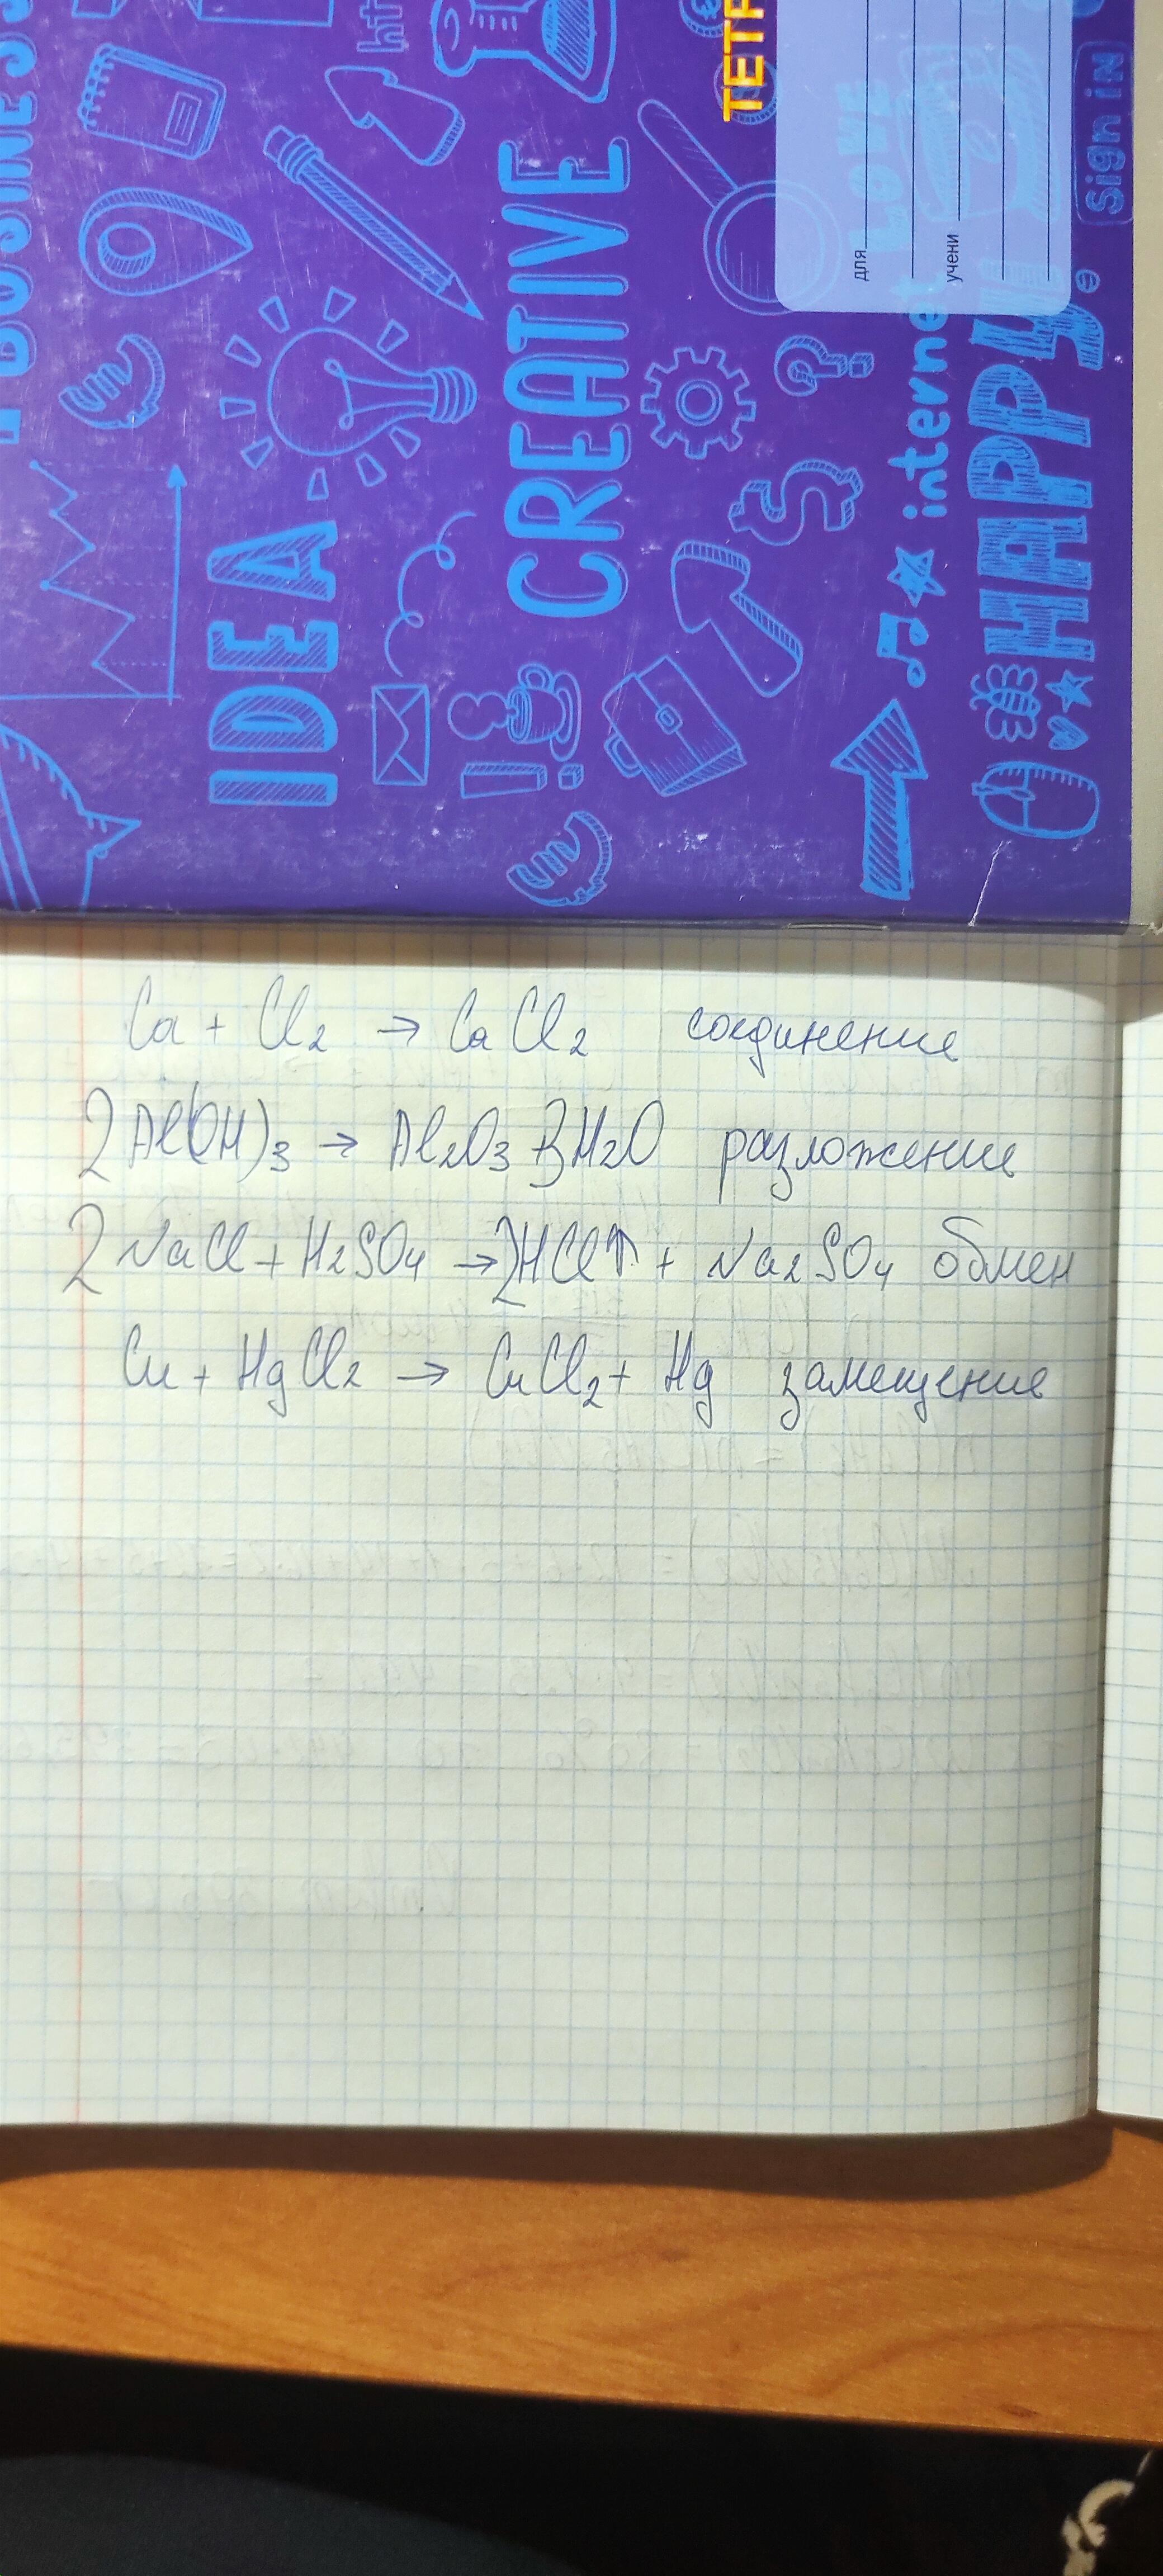 BUSINESS
IDEA
htt
CREATIVE
ТЕТР
для
учени
LOVE
internet
HAPPY
Sign in
Ca + Cl2 → CaCl2 соединение
2Al(OH)3 → Al2O3 + 3H2O разложение
2NaCl + H2SO4 → 2HCl↑ + Na2SO4 обмен
Cu + HgCl2 → CuCl2 + Hg замещение